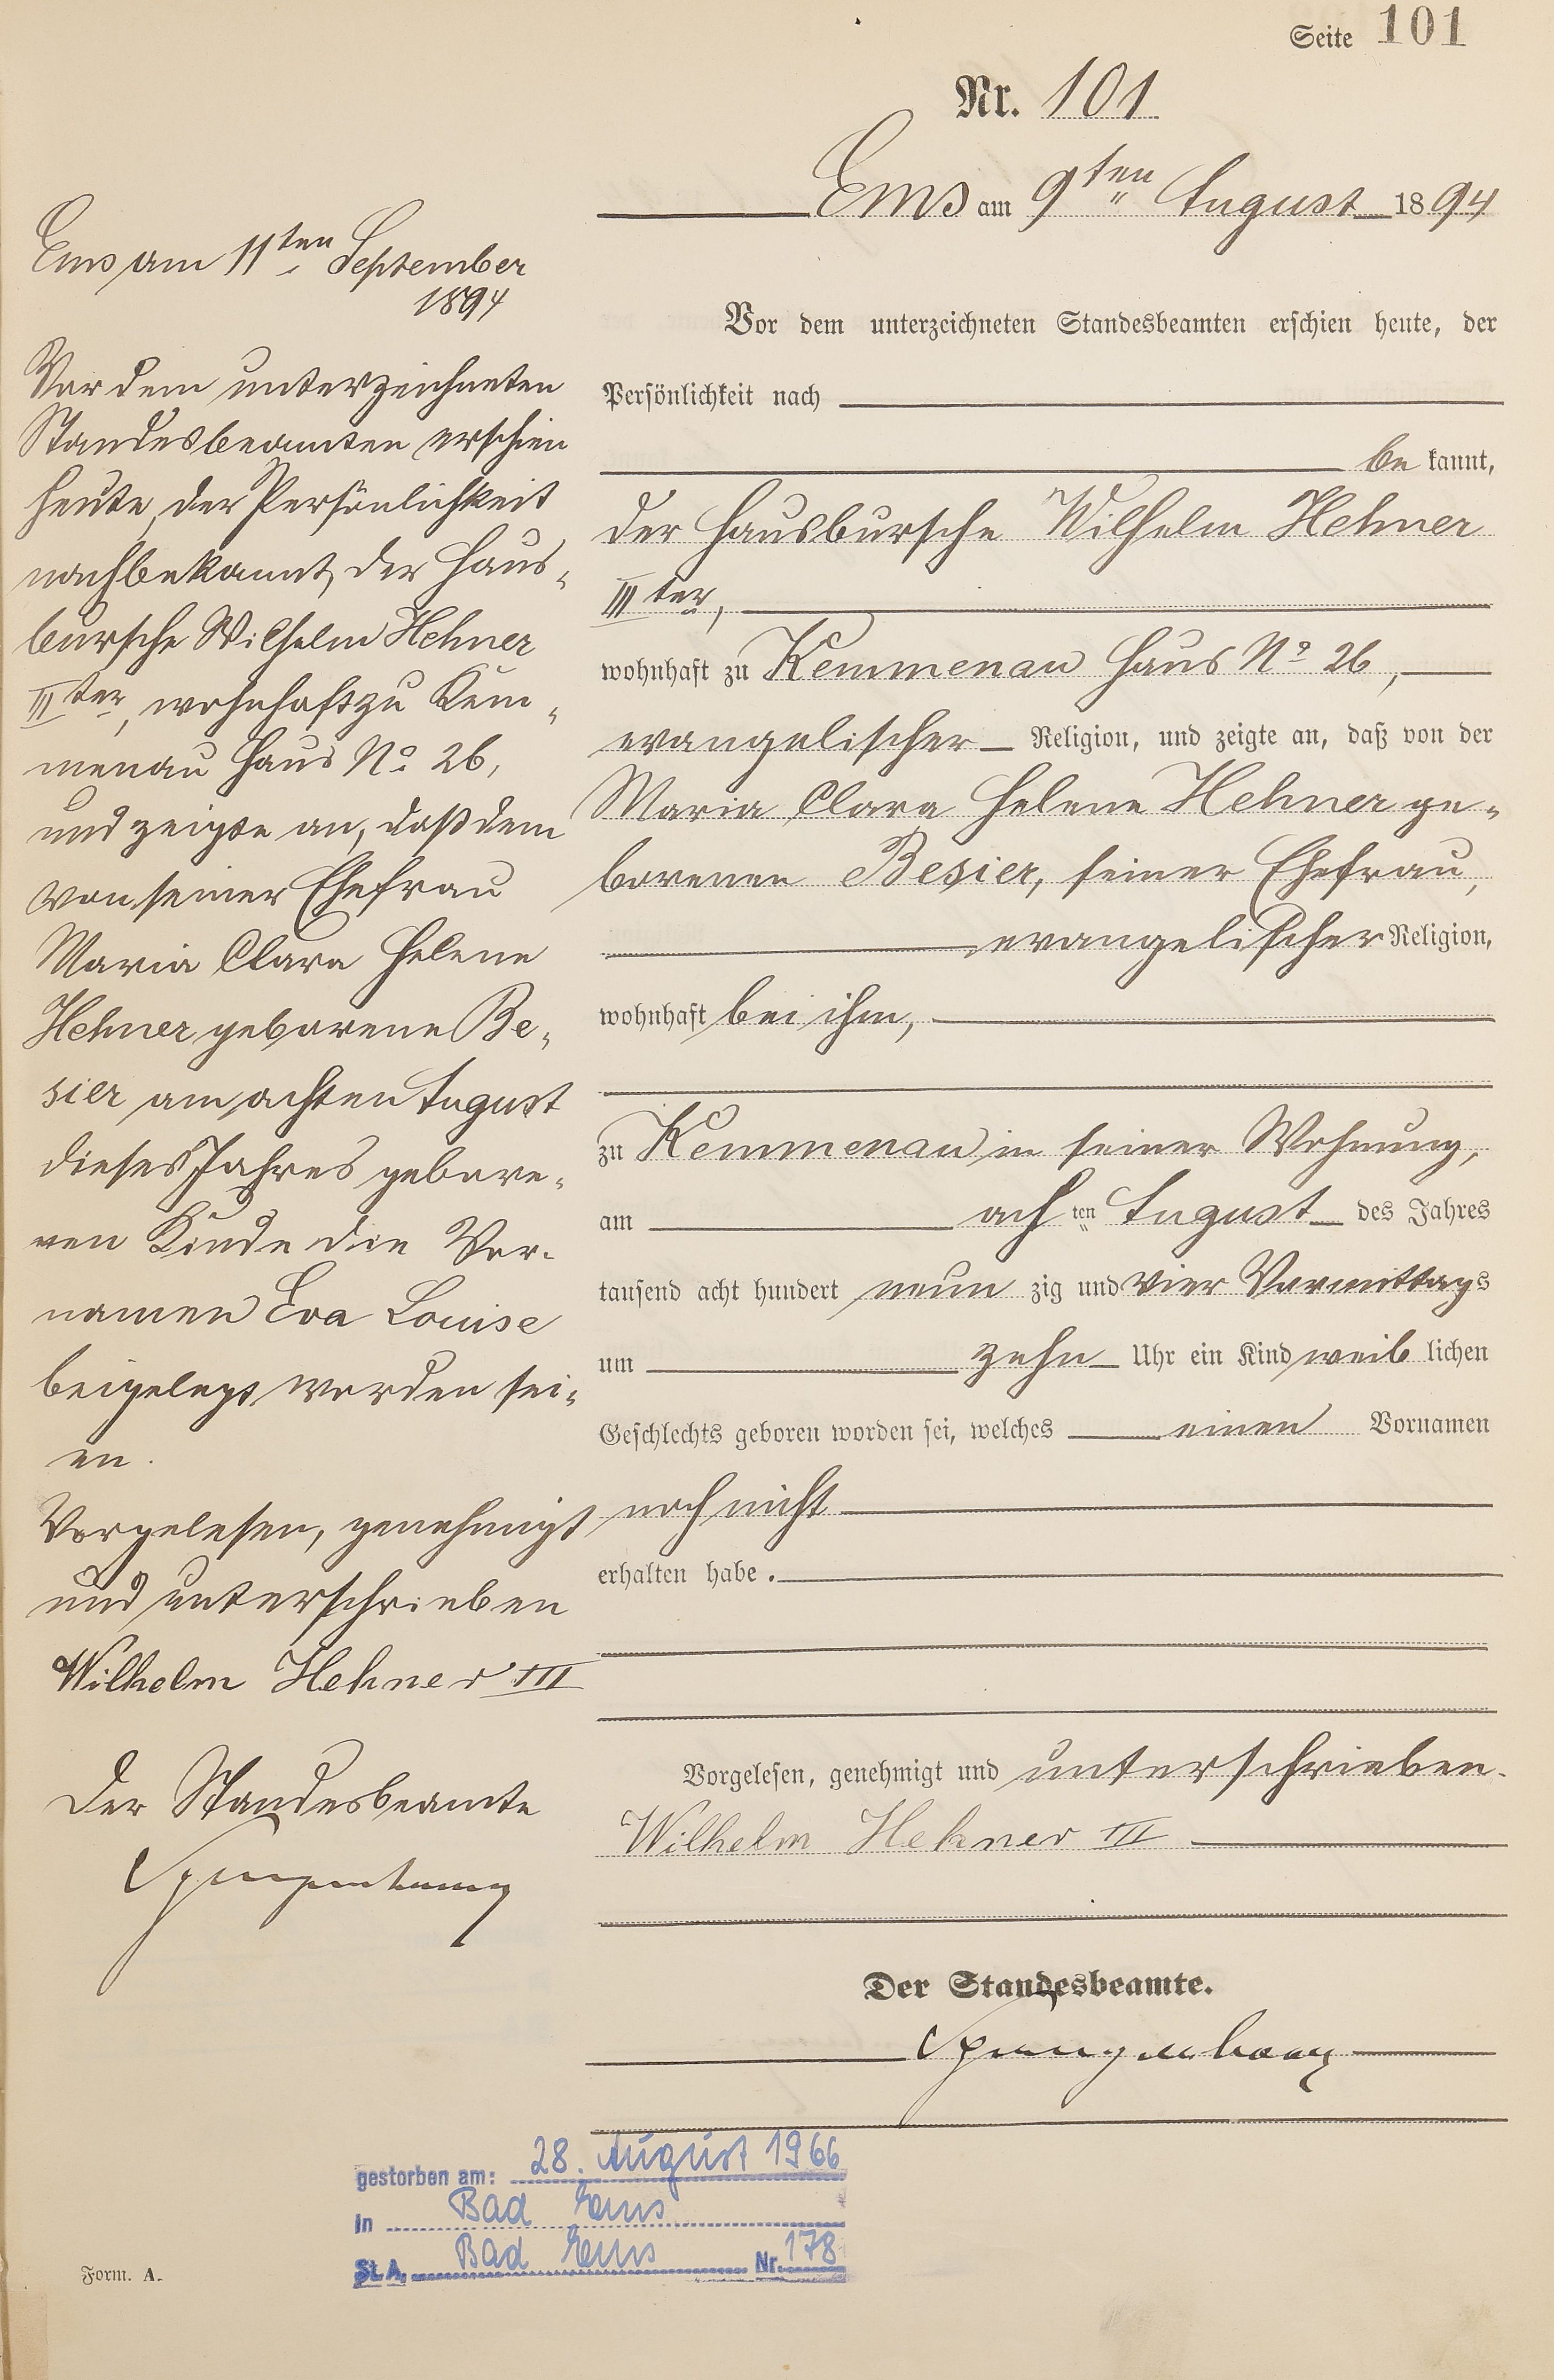 Seite 101
Nr. 101
Ems am 9ten August 1894
Vor dem unterzeichneten Standesbeamten erschien heute, der
Persönlichkeit nach
be kannt,
der Hausbursche Wilhelm Hehner
IIIter,
wohnhaft zu Kemmenau Haus No 26,
evangelischer Religion, und zeigte an, daß von der
Maria Clara Helene Hehner ge-
borenen Besier, seiner Ehefrau,
evangelischer Religion,
wohnhaft bei ihm,
zu Kemmenau in seiner Wohnung,
am achten August des Jahres
tausend acht hundert neun zig und vier Vormittags
um zehn Uhr ein Kind weib lichen
Geschlechts geboren worden sei, welches einen Vornamen
noch nicht
erhalten habe.
Vorgelesen, genehmigt und unterschrieben.
Wilhelm Hehner III
Der Standesbeamte.
Ems am 11ten September
1894
Vor dem unterzeichneten
Standesbeamten erschien
heute, der Persönlichkeit
nach bekannt, der Haus-
bursche Wilhelm Hehner
IIIter, wohnhaft zu Kem-
menau Haus No 26,
und zeigte an, daß dem
von seiner Ehefrau
Maria Clara Helene
Hehner geborene Be-
sier am achten August
dieses Jahres gebore-
nen Kinde die Vor-
namen Eva Louise
beigelegt worden sei-
en.
Vorgelesen, genehmigt
und unterschrieben
Wilhelm Hehner III
Der Standesbeamte
gestorben am: 28. August 1966
in Bad Ems
St.A. Bad Ems Nr. 178
Form. A.